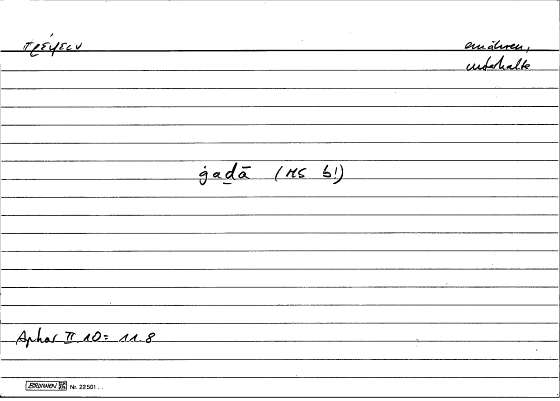 τρέφειν
ernähren,
unterhalte
ġaḏā (MS b!)
Aphor II 10 = 11.8
BRUNNEN Nr. 22501 . .